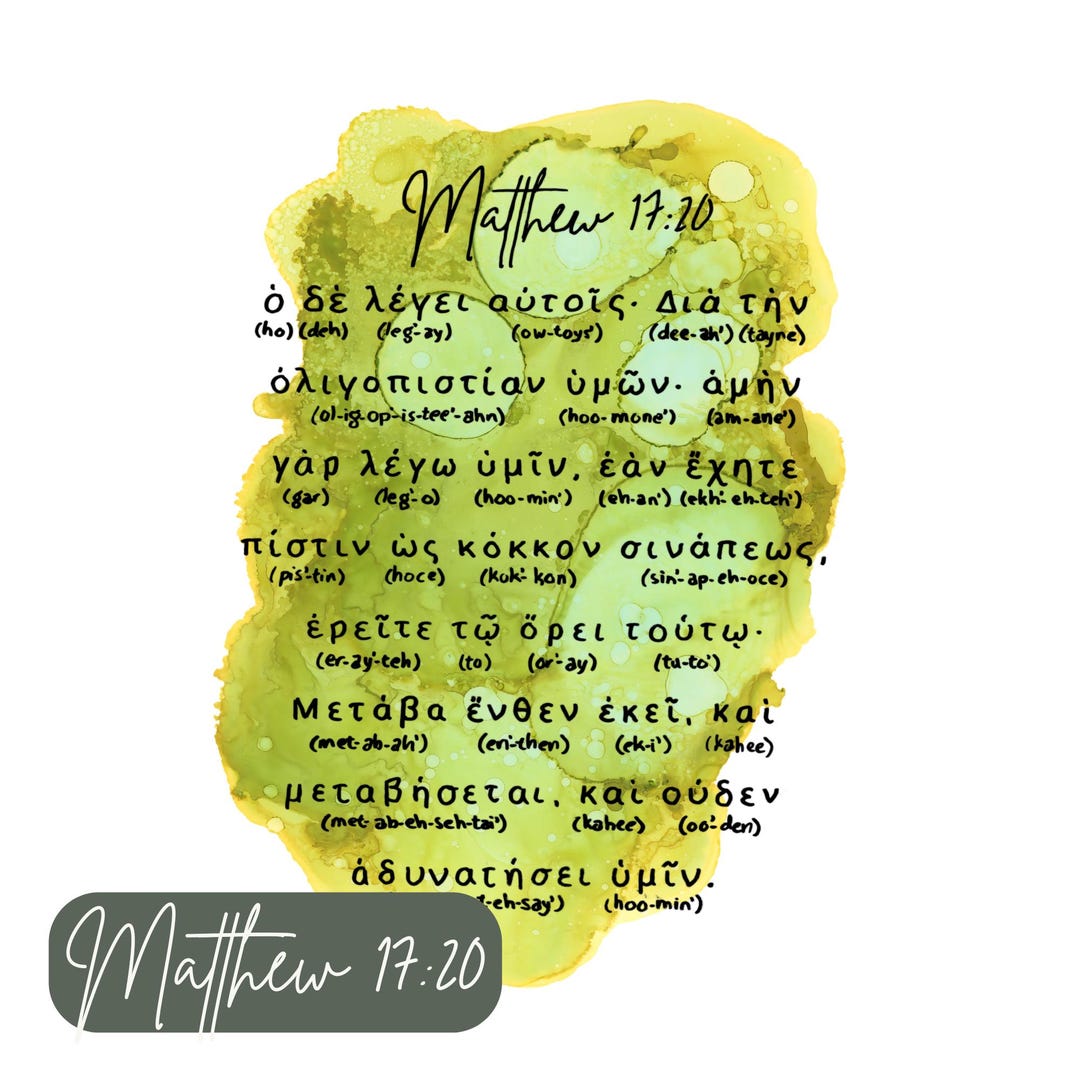 Matthew 17:20
ὁ δὲ λέγει αὐτοῖς· Διὰ τὴν
(ho) (deh) (leg'-ay) (ow-toys') (dee-ah') (tayne)
ὀλιγοπιστίαν ὑμῶν· ἀμὴν
(ol-ig-op-is-tee'-ahn) (hoo-mone') (am-ane')
γὰρ λέγω ὑμῖν, ἐὰν ἔχητε
(gar) (leg'-o) (hoo-min') (eh-an') (ekh'-eh-teh')
πίστιν ὡς κόκκον σινάπεως,
(pis'-tin) (hoce) (kok'-kon) (sin'-ap-eh-oce)
ἐρεῖτε τῷ ὄρει τούτῳ·
(er-ay'-teh) (to) (or'-ay) (tu-to')
Μετάβα ἔνθεν ἐκεῖ, καὶ
(met-ab-ah') (en'-then) (ek-i') (kahee)
μεταβήσεται, καὶ οὐδεν
(met-ab-eh-seh-tai') (kahee) (oo'-den)
ἀδυνατήσει ὑμῖν.
-eh-say') (hoo-min')
Matthew 17:20